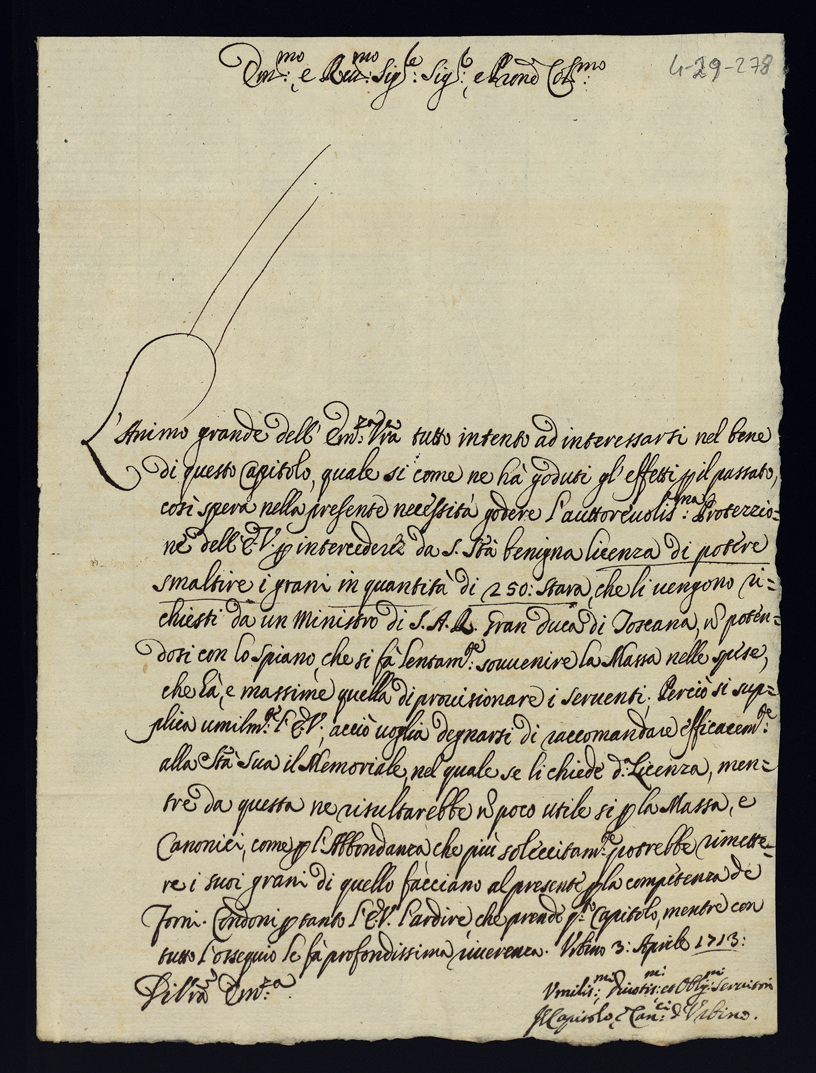 Em.mo e Reu.mo Sig.re Sig.re, e Pron̄e Col.mo
4-29-278
L'Animo grande dell' Em.za Vr̄a tutto intento ad interessarsi nel bene
di questo Capitolo, quale si come ne hà goduti gl' effetti p il passato,
così spera nella presente necessità godere l'auttoreuolis.ma Protezzio=
ne dell' E.V. p intercedere da S. Stà benigna licenza di potere
smaltire i grani in quantità di 250: stara, che li uengono ri=
chiesti da un Ministro di S.A.R. Gran duca di Toscana, ñ poten=
dosi con lo spiano, che si fà lentam.te souuenire la Massa nelle spese,
che hà, e massime quella di prouisionare i seruenti. Perciò si sup=
plica umilm.te l'E.V., acciò uoglia degnarsi di raccomandare efficacem.te
alla Stà Sua il Memoriale, nel quale se li chiede d.a Licenza, men=
tre da questa ne risultarebbe ñ poco utile sì p la Massa, e
Canonici, come p l'Abbondanza che più solecitam.te potrebbe rimette=
re i suoi grani di quello facciano al presente p la competenza de
Forni. Condoni p tanto l'E.V. l'ardire che prende q.to Capitolo, mentre con
tutto l'ossequio le fà profondissima riuerenza. Vrbino 3: Aprile 1713:
Di Vr̄a Em.za
Vmilis.mi Diuotis.mi et Obl.mi Seruitori
Il Capitolo, e Can.ci d'Vrbino.